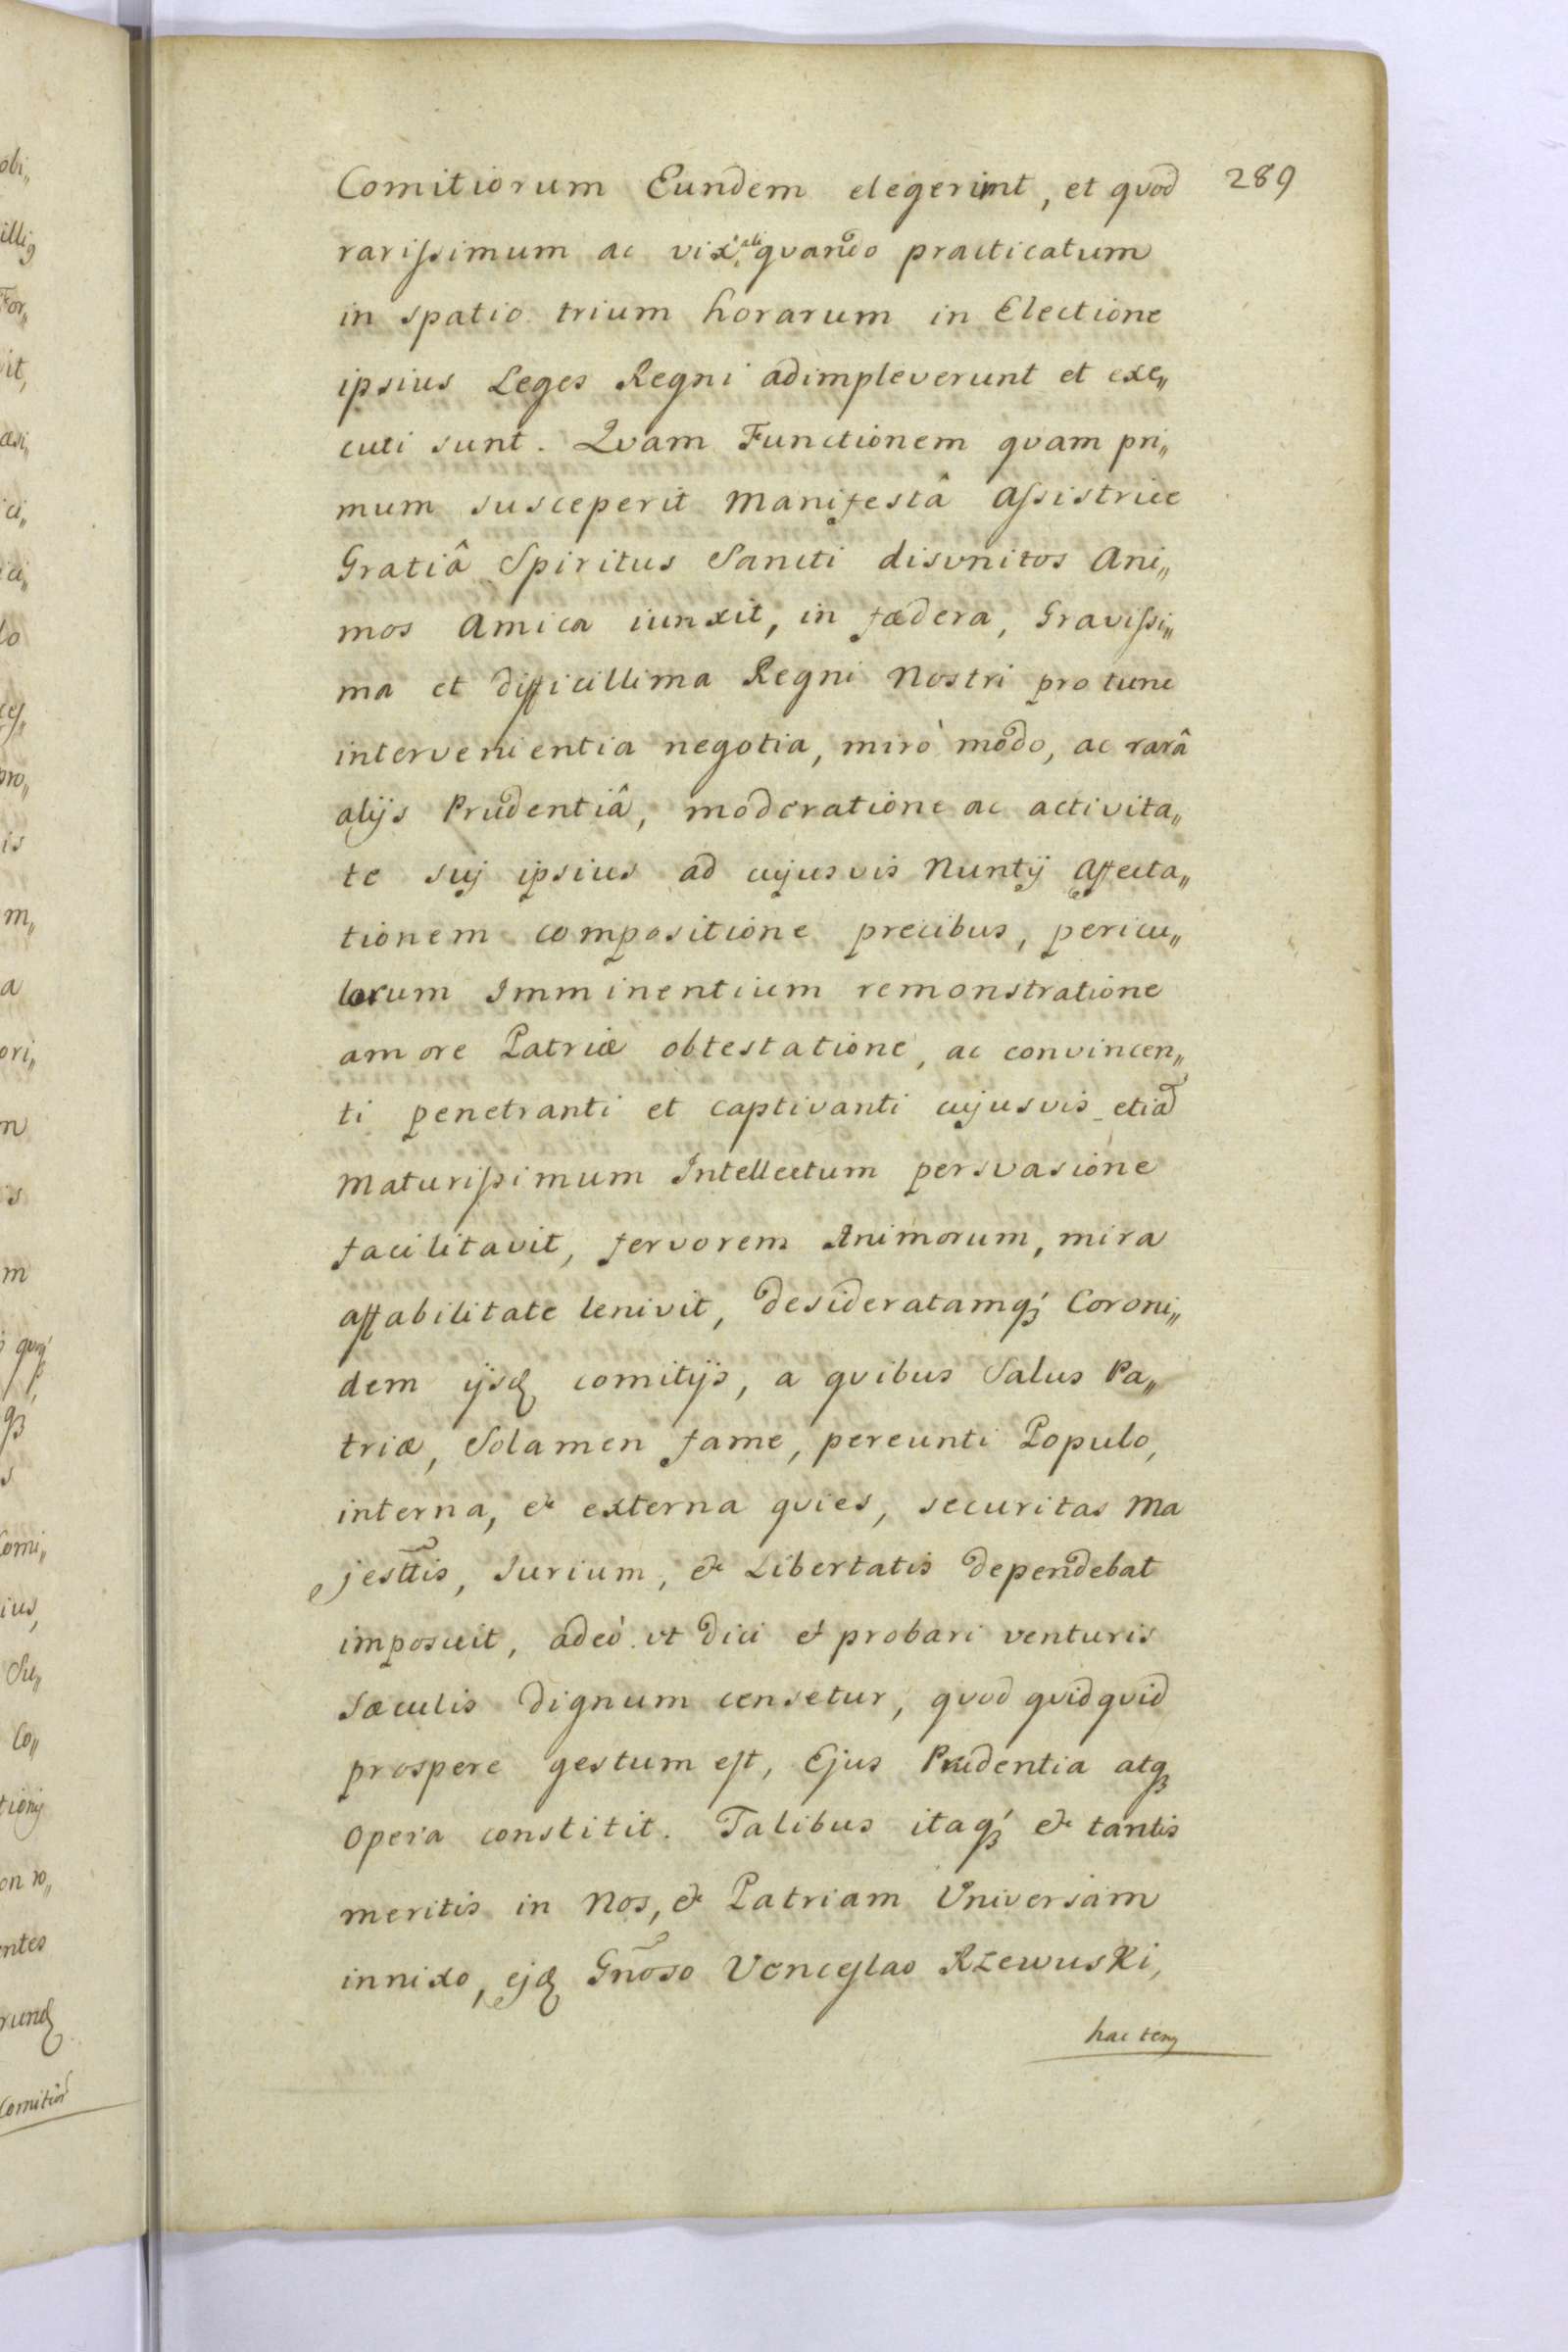 Comitiorum Eundem elegerint, et quod 289
rarissimum ac vix aliquando practicatum
in spatio trium horarum in Electione
ipsius Leges Regni adimpleverunt et exe„
cuti sunt. Quam Functionem quam pri„
mum susceperit Manifestâ Assistrice
Gratiâ Spiritus Sancti disunitos Ani„
mos Amica iunxit, in fædera, Gravissi„
ma et difficillima Regni Nostri pro tunc
intervenientia negotia, mirò modo, ac rarâ
alijs Prudentiâ, moderatione ac activita„
te suj ipsius ad cujusvis Nuntij Affecta„
tionem compositione precibus, pericu„
lorum Imminentium remonstratione
amore Patriæ obtestatione, ac convincen„
ti penetranti et captivanti cujusvis etiā
Maturissimum Intellectum persvasione
facilitavit, fervorem Animorum, mira
affabilitate lenivit, desideratamqꝫ Coroni„
dem ijsđ comitijs, a quibus Salus Pa„
triæ, Solamen fame, pereunti Populo,
interna, & externa quies, securitas Ma
jesttis, Jurium, & Libertatis dependebat
imposuit, adeò ut dici & probari venturis
Sæculis dignum censetur, quod quidquid
prospere gestum est, Ejus Prudentia atqꝫ
Opera constitit. Talibus itaqꝫ & tantis
meritis in Nos, & Patriam Universam
innixo, ejđ Gnoso Venceslao Rzewuski,
hac teny